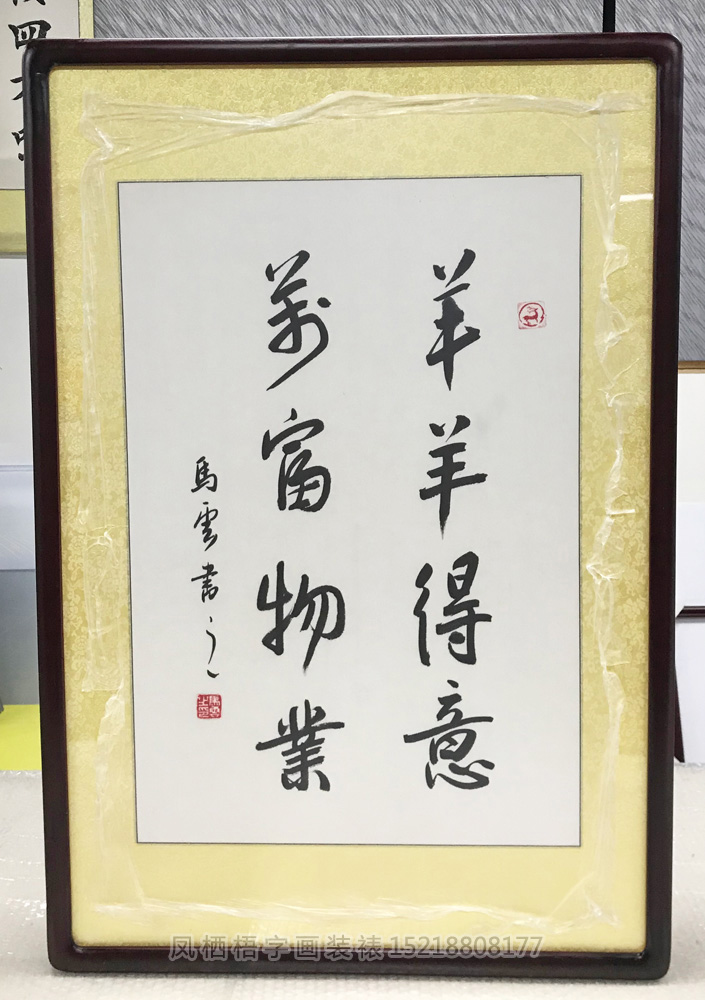 羊羊得意
萬富物業
馬雲書之
凤栖梧字画装裱15218808177